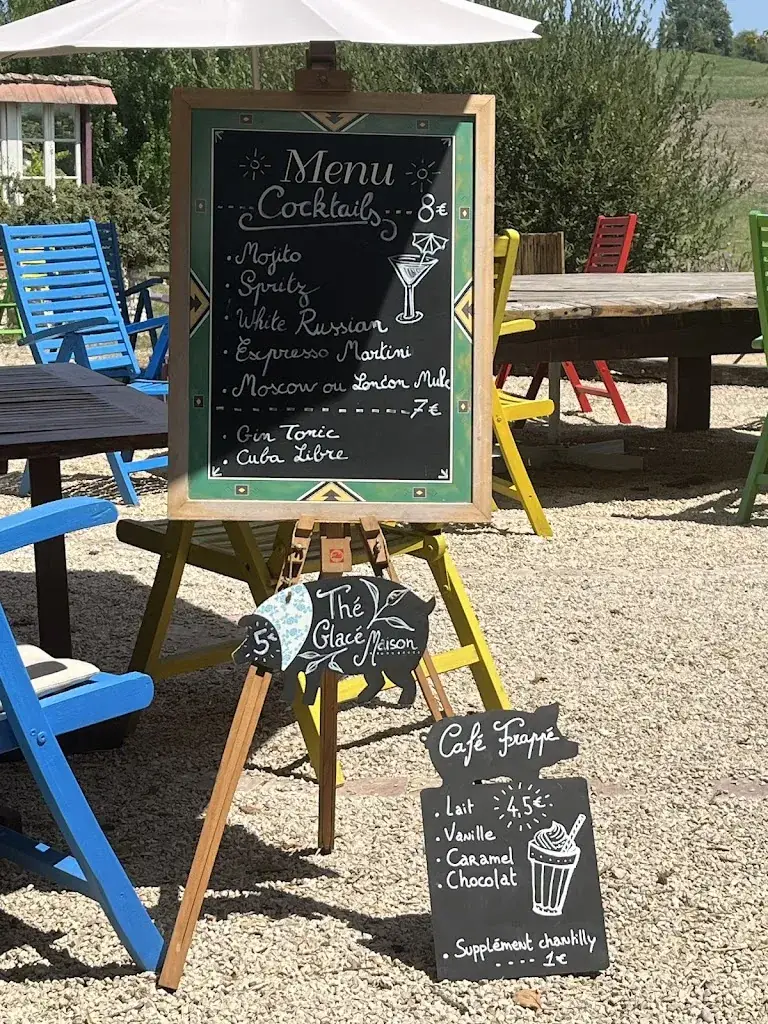 Menu
Cocktails 8€
• Mojito
• Spritz
• White Russian
• Expresso Martini
• Moscow ou London Mule
7€
• Gin Tonic
• Cuba Libre
5€
Thé
Glacé
Maison
Café Frappé
• Lait 4,5€
• Vanille
• Caramel
• Chocolat
• Supplément chantilly
1€